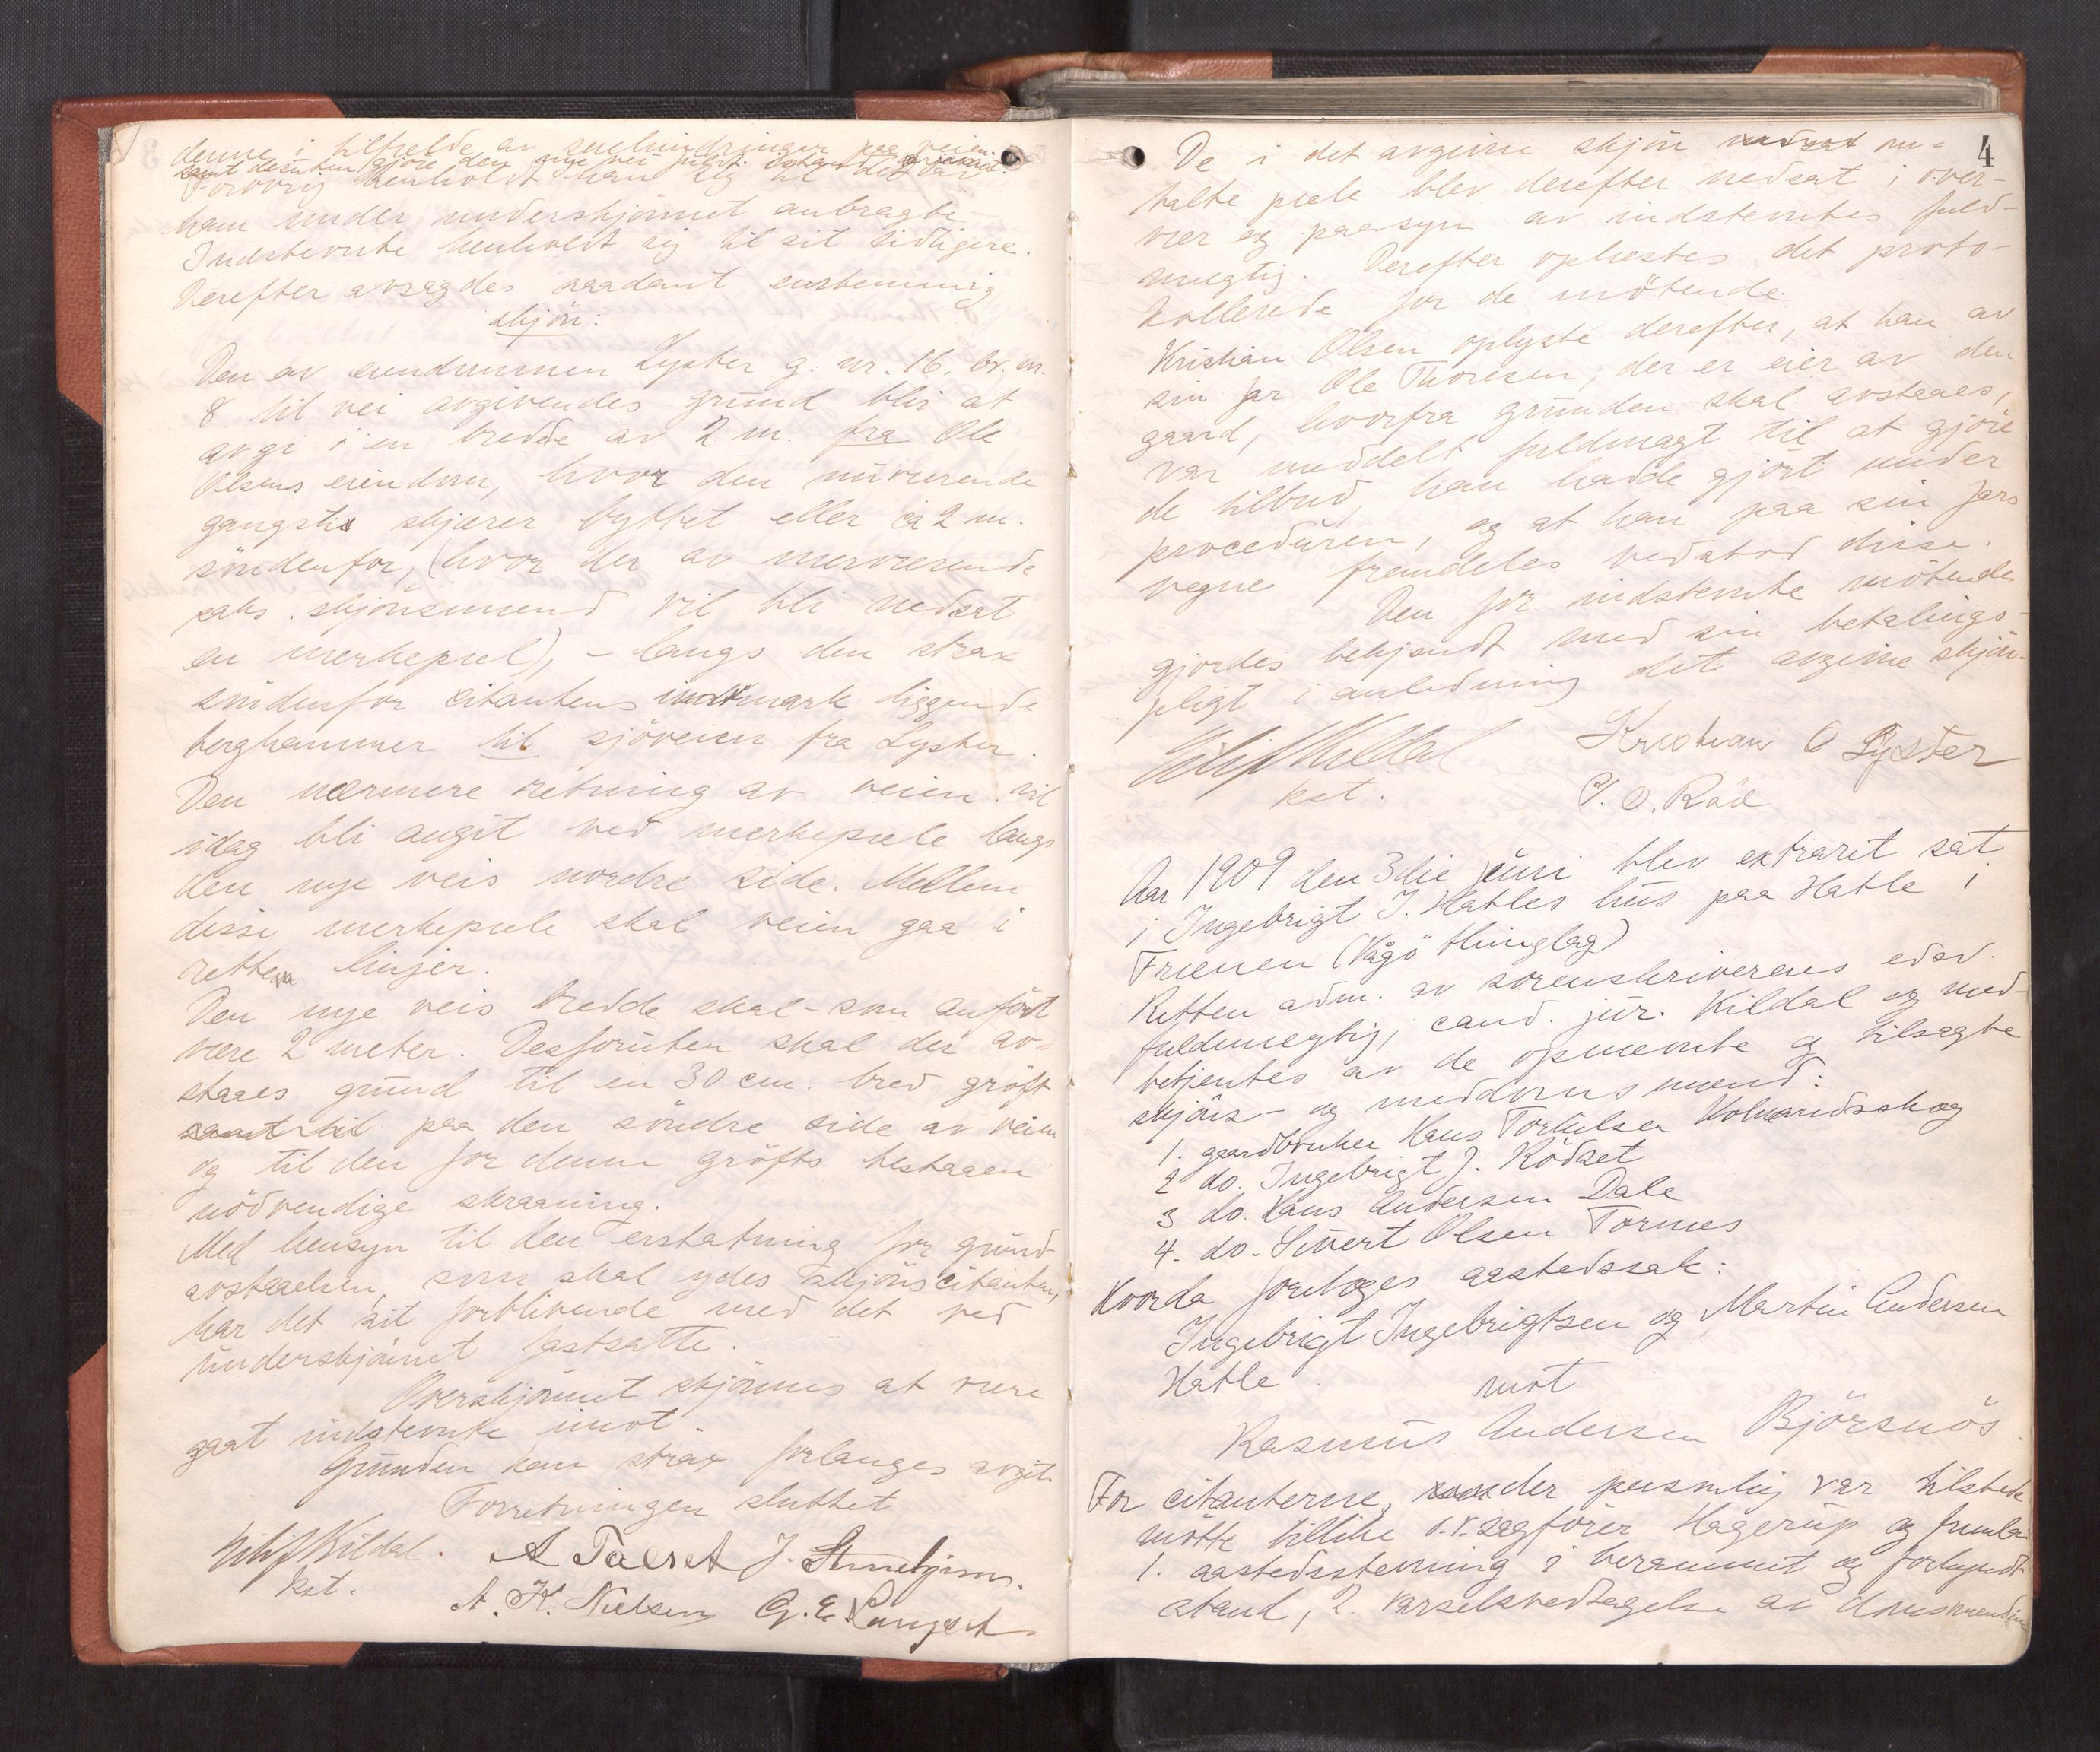 denne i tilfælde av snehindringer paa veien
samt desuten gjøre den nye vei fuldt istand
Forøvrig henholdt han sig til det av
ham under underskjønnet anbragte
Indstevnte henholdt sig til sit tidligere.
Derefter avsagdes saadant enstemmig
skjøn:
Den av eiendommen Lyster g. nr. 16, br. nr.
8 til vei avgivendes grund blir at
avgi i en bredde av 2 m. fra Ole
Olsens eiendom, hvor den nuværende
gangsti skjærer byttet eller ca 2 m.
søndenfor, (hvor der av nærværende
saks skjønsmænd vil bli nedsat
en merkepæl), - langs den strax
søndenfor citantens indmark liggende
berghammer til sjøveien fra Lyster.
Den nærmere retning av veien vil
idag bli angit ved merkepæle langs
den nye veis nordre side. Mellem
disse merkepæle skal veien gaa i
rette linjer.
Den nye veis bredde skal - som anført
være 2 meter. Desforuten skal der av-
staaes grund til en 30 cm. bred grøft
samt til paa den søndre side av veien
og til den for denne grøfts
nødvendige skraaning.
Med hensyn til den erstatning for grund-
avstaaelsen, som skal ydes skjønscitanten,
har det sit forblivende med det ved
underskjønnet fastsatte.
Overskjønnet skjønnes at være
gaat indstevnte imot.
Grunden kan strax forlanges avgit.
Forretningen sluttet
Eilif Kildal. A Talset J.
kst. A. K. Nielsen G. E.
4
De i det avgivne skjøn nedsat om-
talte pæle blev derefter nedsat i over-
vær og paasyn av indstevntes fuld-
mægtig. Derefter oplæstes det proto-
kollerede for de møtende.
Kristian Olsen oplyste derefter, at han av
sin far Ole Thoresen, der er eier av den
gaard, hvorfra grunden skal avstaaes,
var meddelt fuldmagt til at gjøre
de tilbud, han hadde gjort under
proceduren, og at han paa sin fars
vegne fremdeles vedstod disse.
Den for indstevnte møtende
gjordes bekjendt med sin betalings-
pligt i anledning det avgivne skjøn.
Eilif Kildal Kristian O Lyster
kst. O. Röd
Aar 1909 den 3die juni blev extraret sat
i Ingebrigt I. Hatles hus paa Hatle i
Frænen (Vågø thinglag)
Retten adm. av sorenskriverens edsv.
fuldmægtig, cand. jur. Kildal og med-
betjentes av de opnævnte og tilsagte
skjøns- og meddomsmænd:
1. gaardbruker Hans Torkilsen Kolmandsskog
2 do. Ingebrigt J. Rödset
3 do. Hans Andersen Dale
4. do. Sivert Olsen Tornes
Hvorda foretoges aastedssak:
Ingebrigt Ingebrigtsen og Martin Andersen
Hatle
mot
Rasmus Andersen Björsnös.
For citanterne, der personlig var tilstede
møtte tillike o.r.sagfører Hagerup og fremla:
1. aastedsstevning i berammet og forkyndt
stand, 2. varselsvedtagelse av domsmænden